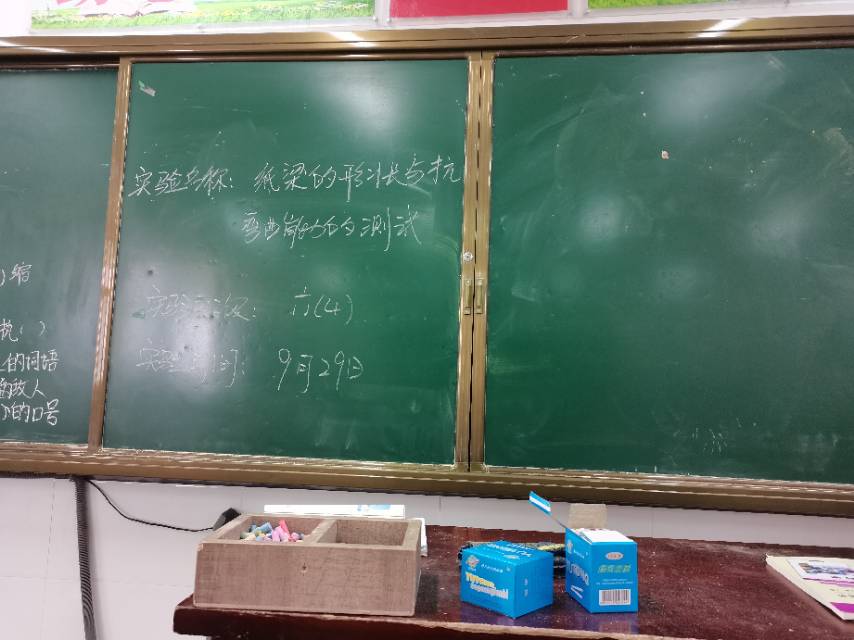 实验名称：纸梁的形状与抗
弯曲能力的测试
实验班级：六(4)
实验时间：9月29日
)缩
抗( )
的词语
故人
的口号